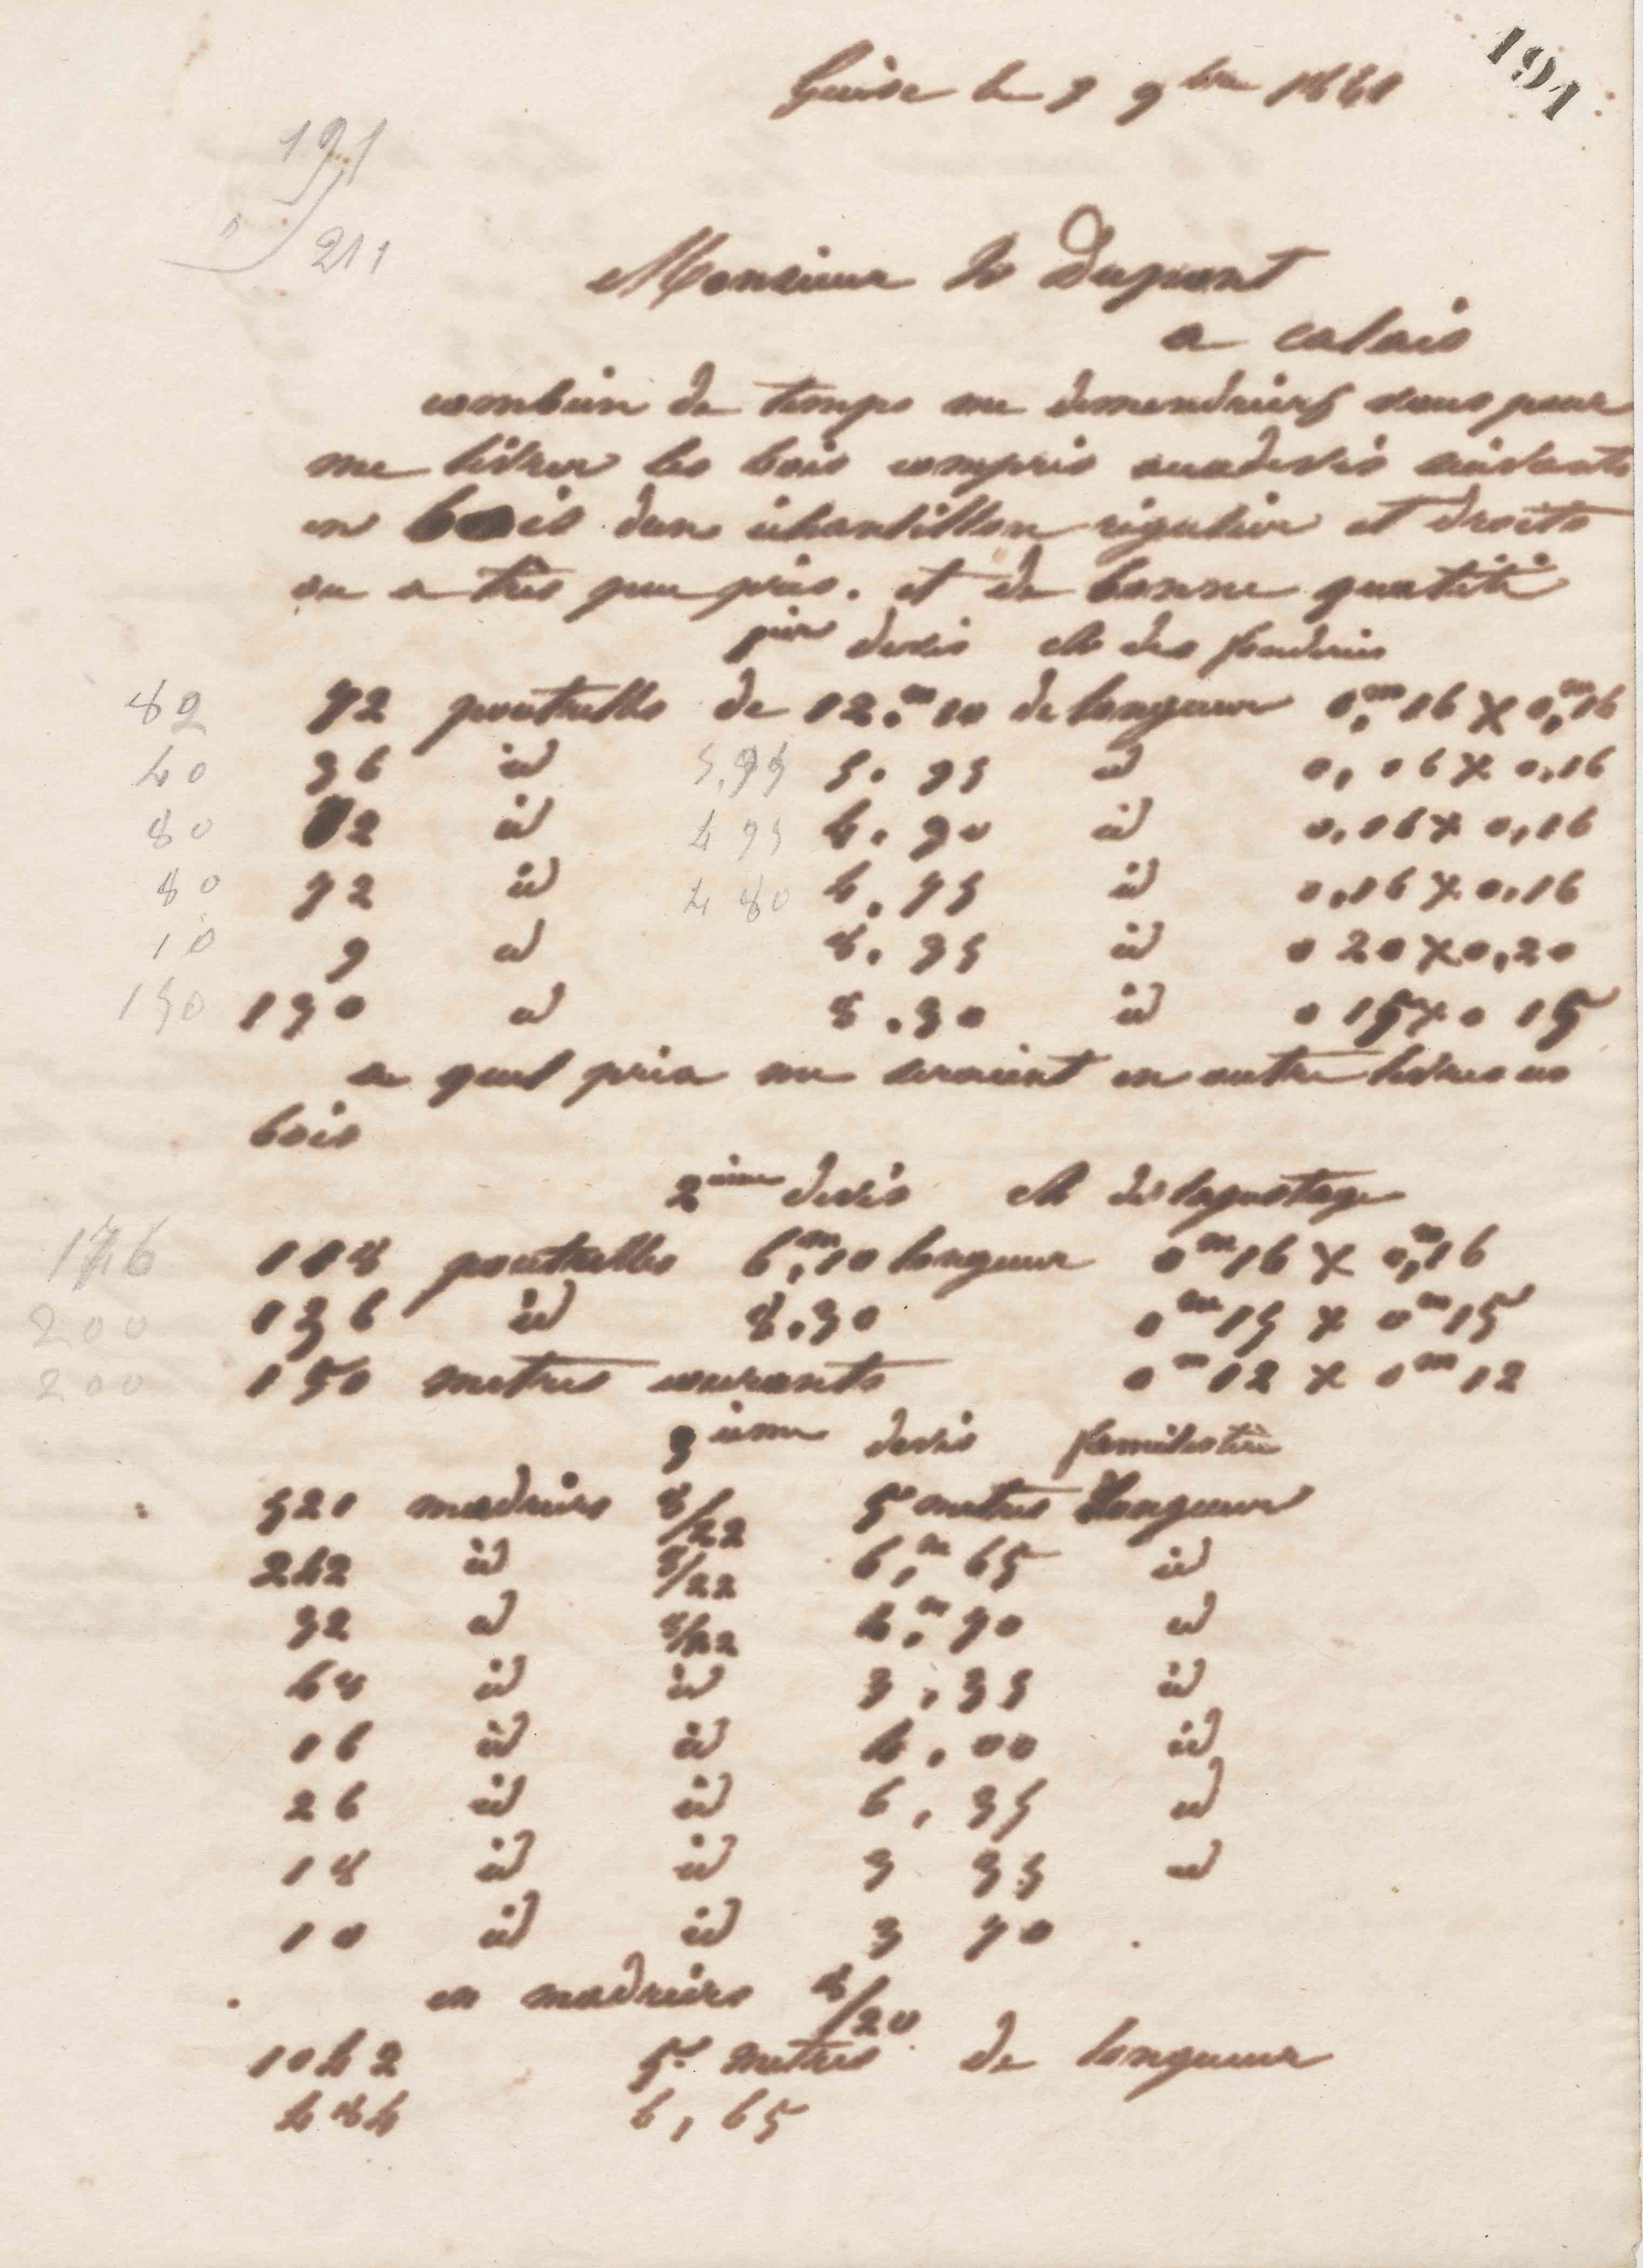 191
Guise le 9 9bre 1881
191
" 211
Monsieur Dupont
a calais
combien de temps me demenderiez vous pour
me livrer les bois compris suivants
en bois dun échantillon régulier et droits
ou a très peu près. et de bonne qualité
pier devis des fonderies
82 72 poutrelles de 12.m10 de longueur 0,m16 x 0,m16
40 36 id 5,95 5.95 id 0,16 x 0,16
80 72 id 4 95 4.90 id 0,16 x 0,16
80 72 id 4 80 4.75 id 0,16 x 0,16
10 9 id 8.35 id 0 20 x 0,20
150 130 id 8.30 id 0 15 x 0 15
a quel prix me seraient en outre livrés ces
bois
2ième devis
176 118 poutrelles 6,m10 longueur 0m16 x 0,m16
200 136 id 8.30 0m15 x 0m15
200 150 metres courants 0m12 x 0m12
3ième devis familistère
521 madriers 8/22 5 metres longueur
242 id 8/22 6,m65 id
32 id 8/22 4.m70 id
68 id id 3,35 id
16 id id 4,00 id
26 id id 6,35 id
18 id id 3 35 id
10 id id 3 70
en madriers 8/20
1042 5 metres de longueur
484 6,65